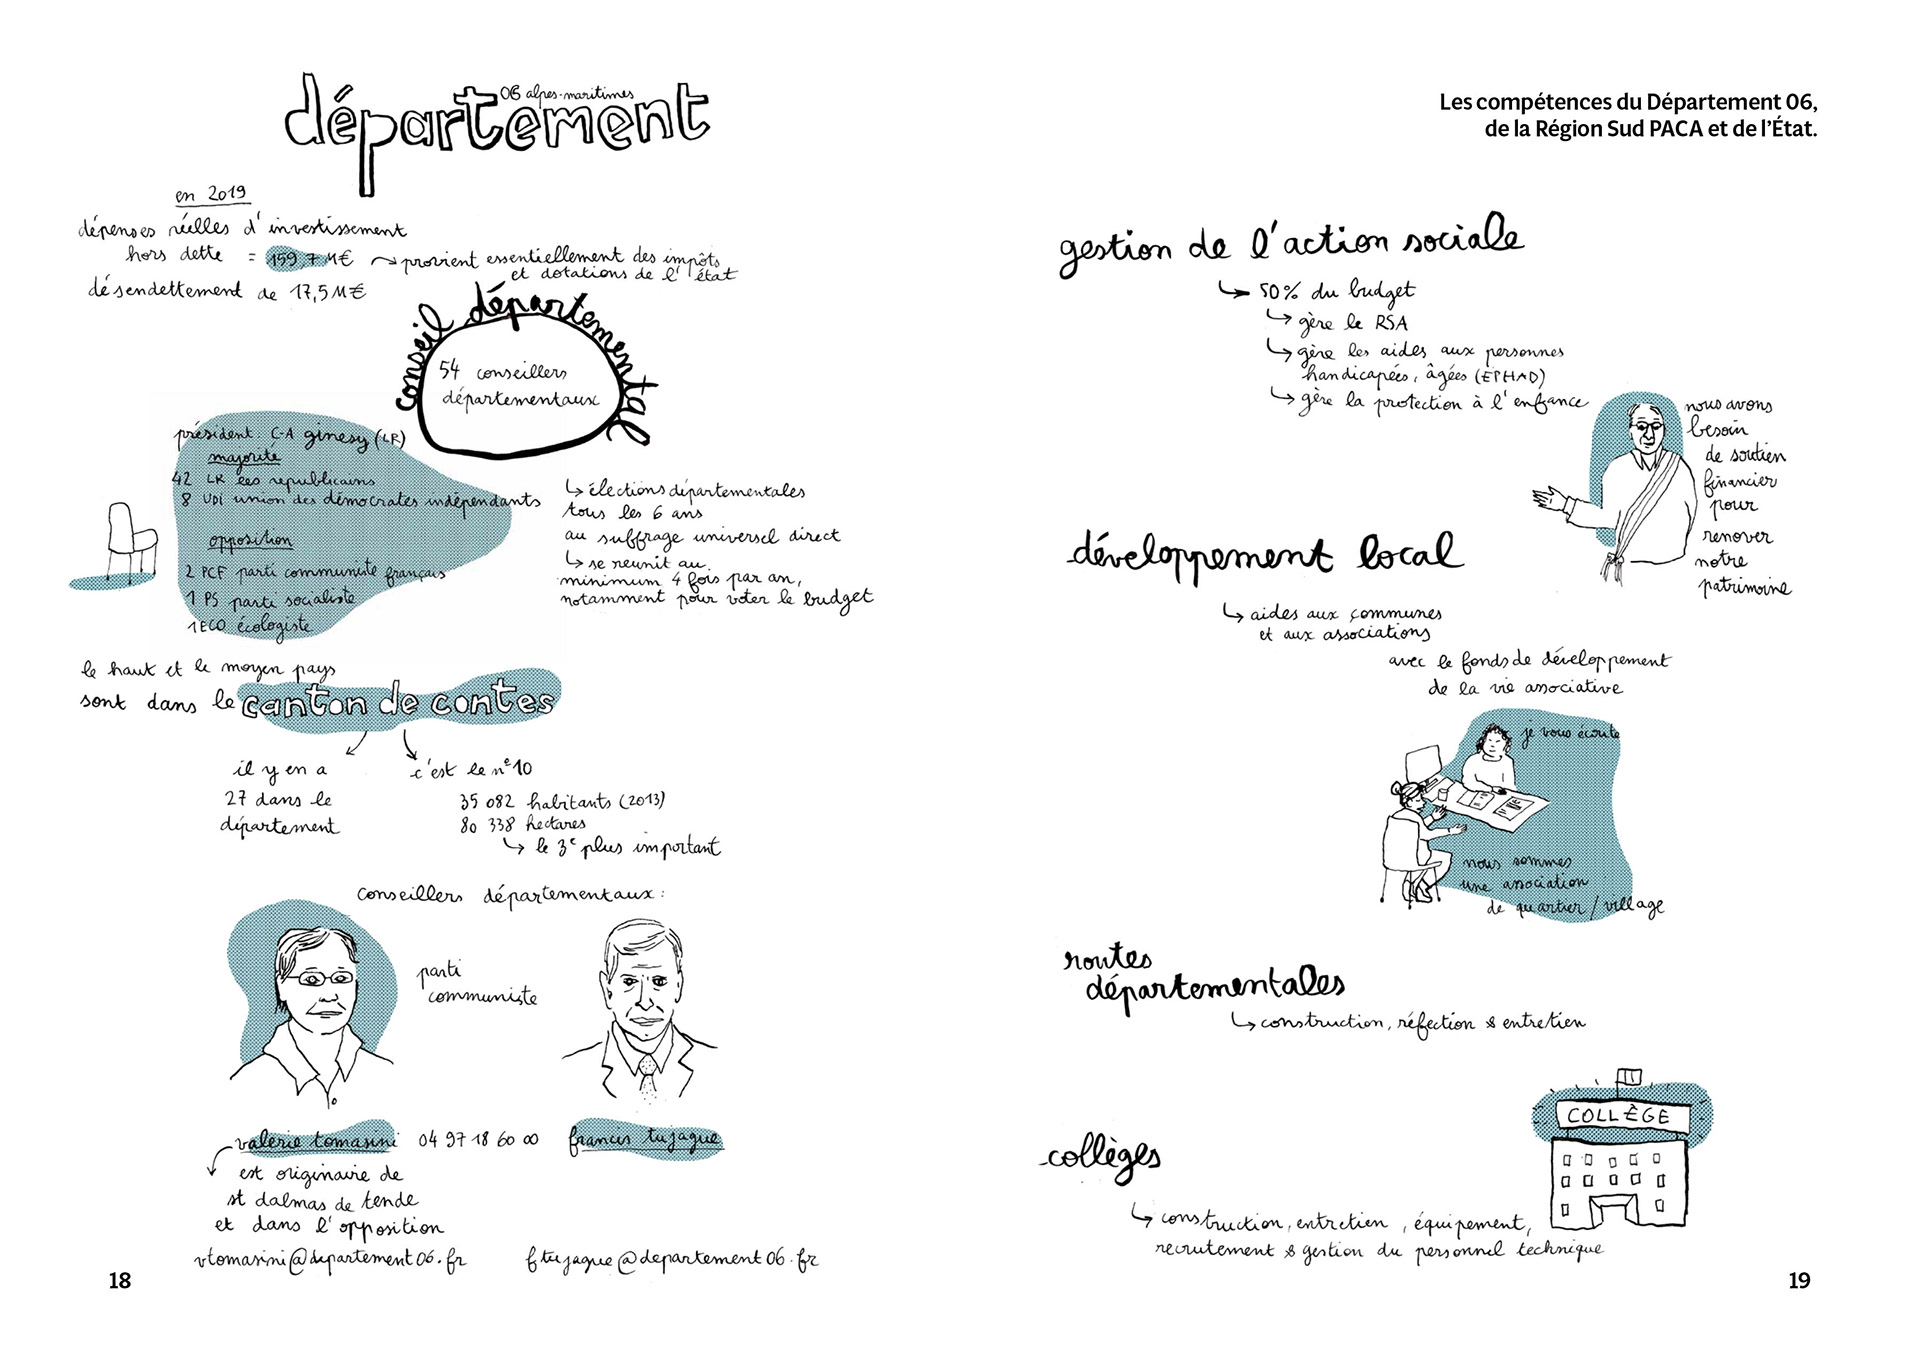 06 alpes-maritimes
département
en 2019
dépenses réelles d'investissement
hors dette = 159,7 M€ provient essentiellement des impôts
et dotations de l'état
désendettement de 17,5 M€
conseil départemental
54 conseillers
départementaux
président: C-A ginesy (LR)
majorité
42 LR les republicains
8 UDI union des démocrates indépendants
opposition
2 PCF parti communiste français
1 PS parti socialiste
1 ECO écologiste
élections départementales
tous les 6 ans
au suffrage universel direct
se reunit au
minimum 4 fois par an,
notamment pour voter le budget
le haut et le moyen pays
sont dans le canton de contes
il y en a
27 dans le
département
c'est le n°10
35 082 habitants (2013)
80 338 hectares
le 3e plus important
conseillers départementaux:
parti
communiste
valérie tomasini 04 97 18 60 00 francis tujague
est originaire de
st dalmas de tende
et dans l'opposition
vtomasini@departement06.fr ftujague@departement06.fr
18
Les compétences du Département 06,
de la Région Sud PACA et de l'État.
gestion de l'action sociale
50% du budget
gère le RSA
gère les aides aux personnes
handicapées, âgées (EPHAD)
gère la protection à l'enfance
nous avons
besoin
de soutien
financier
pour
renover
notre
patrimoine
développement local
aides aux communes
et aux associations
avec le fonds de développement
de la vie associative
je vous écoute
nous sommes
une association
de quartier / village
routes
départementales
construction, réfection & entretien
COLLÈGE
collèges
construction, entretien, équipement,
recrutement & gestion du personnel technique
19